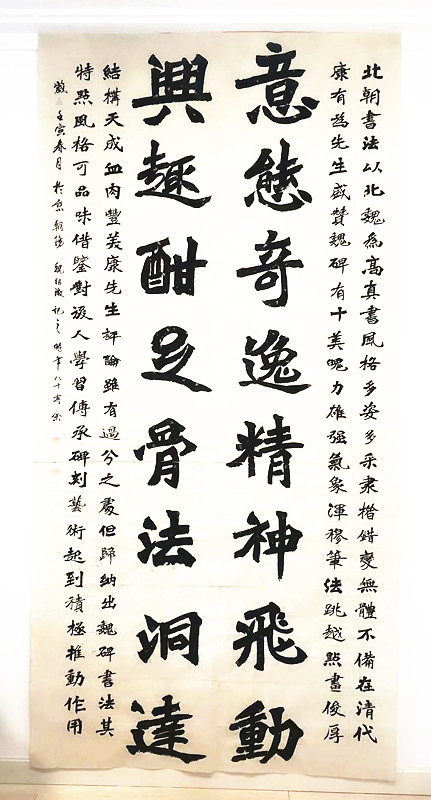 北朝書法以北魏為高真書風格多姿多采隶楷錯變無體不備在清代
康有為先生盛贊魏碑有十美魄力雄强氣象渾穆筆法跳越點畫俊厚
意態奇逸精神飛動
興趣酣足骨法洞達
結構天成血肉豐美康先生評論雖有過分之處但歸納出魏碑書法其
特點風格可品味借鑒對後人學習傳承碑刻藝術起到積極推動作用
壬寅春月於京朝陽 魏 記之 時年八十有余